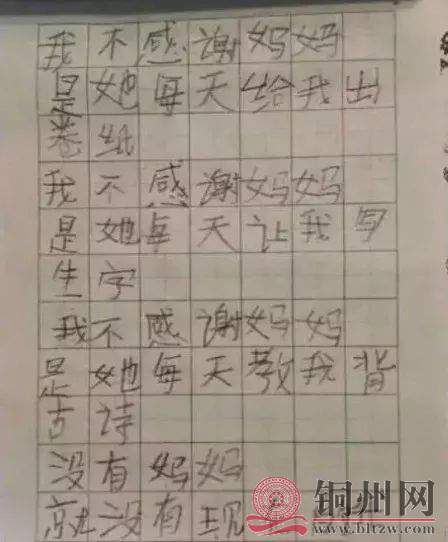 我不感谢妈妈
是她每天给我出
卷纸
我不感谢妈妈
是她每天让我写
生字
我不感谢妈妈
是她每天教我背
古诗
没有妈妈
就没有现
铜州网
www.bltzw.com